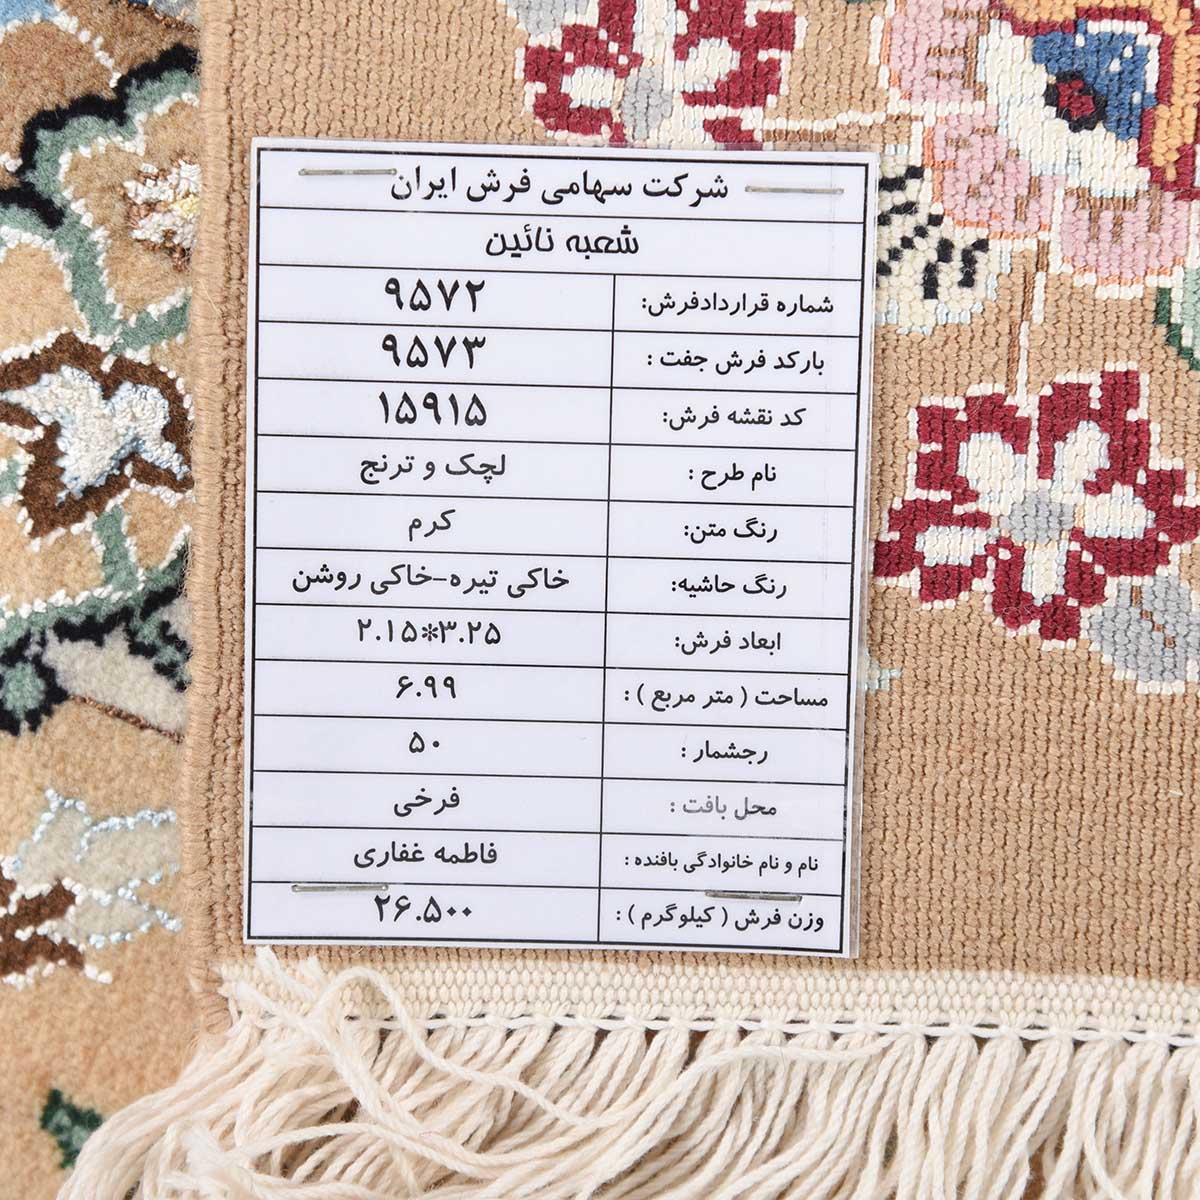 شرکت سهامی فرش ایران
شعبه نائین
شماره قراردادفرش: ۹۵۷۲
بارکد فرش جفت : ۹۵۷۳
کد نقشه فرش: ۱۵۹۱۵
نام طرح : لچک و ترنج
رنگ متن: کرم
رنگ حاشیه: خاکی تیره-خاکی روشن
ابعاد فرش: ۲.۱۵*۳.۲۵
مساحت ( متر مربع ) : ۶.۹۹
رجشمار : ۵۰
محل بافت : فرخی
نام و نام خانوادگی بافنده : فاطمه غفاری
وزن فرش ( کیلوگرم ) : ۲۶.۵۰۰